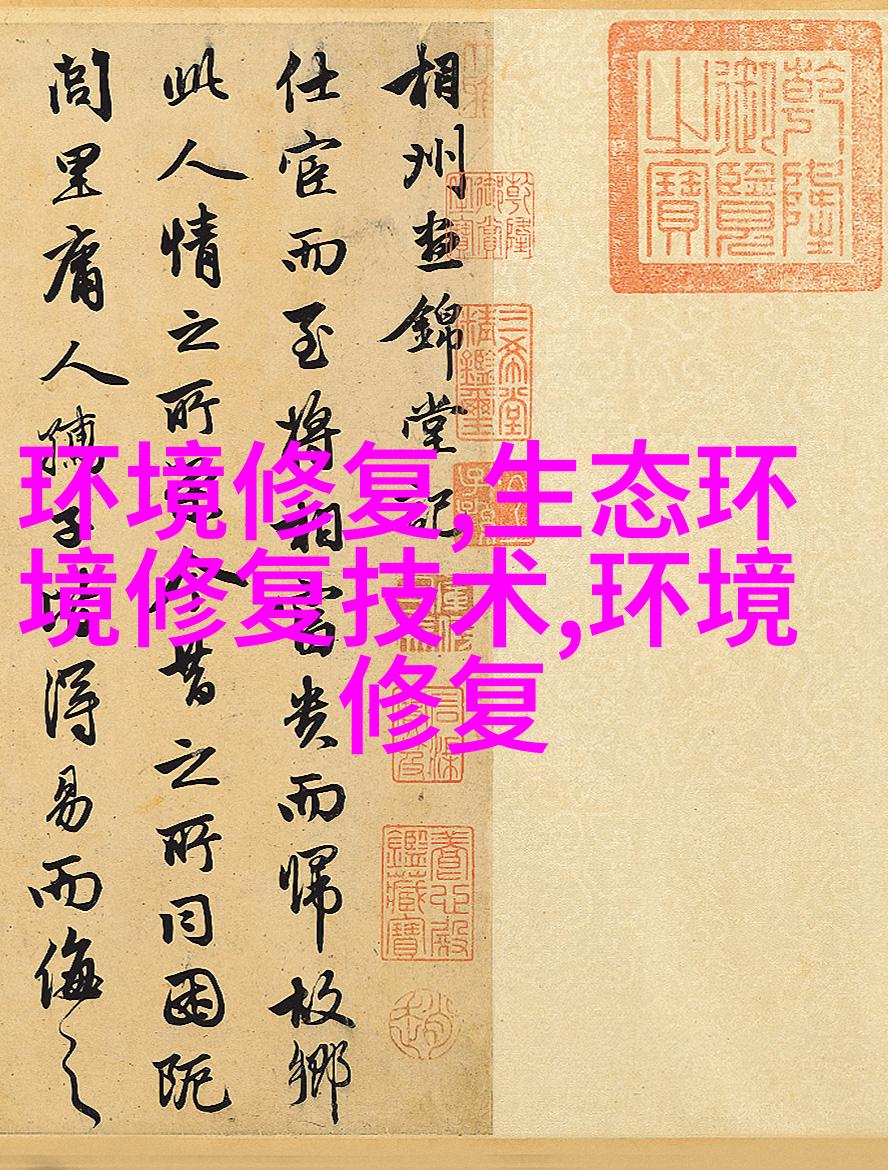 乾隆御覽之寶
相州晝錦堂記
仕宦而至将相富貴而歸故鄉
此人情之所榮今昔之所同困阨
閭里庸人孺子皆得易而侮之
三希堂精鑑璽
養心殿鑑藏寶
环境修复,生态环
境修复技术,环境
修复